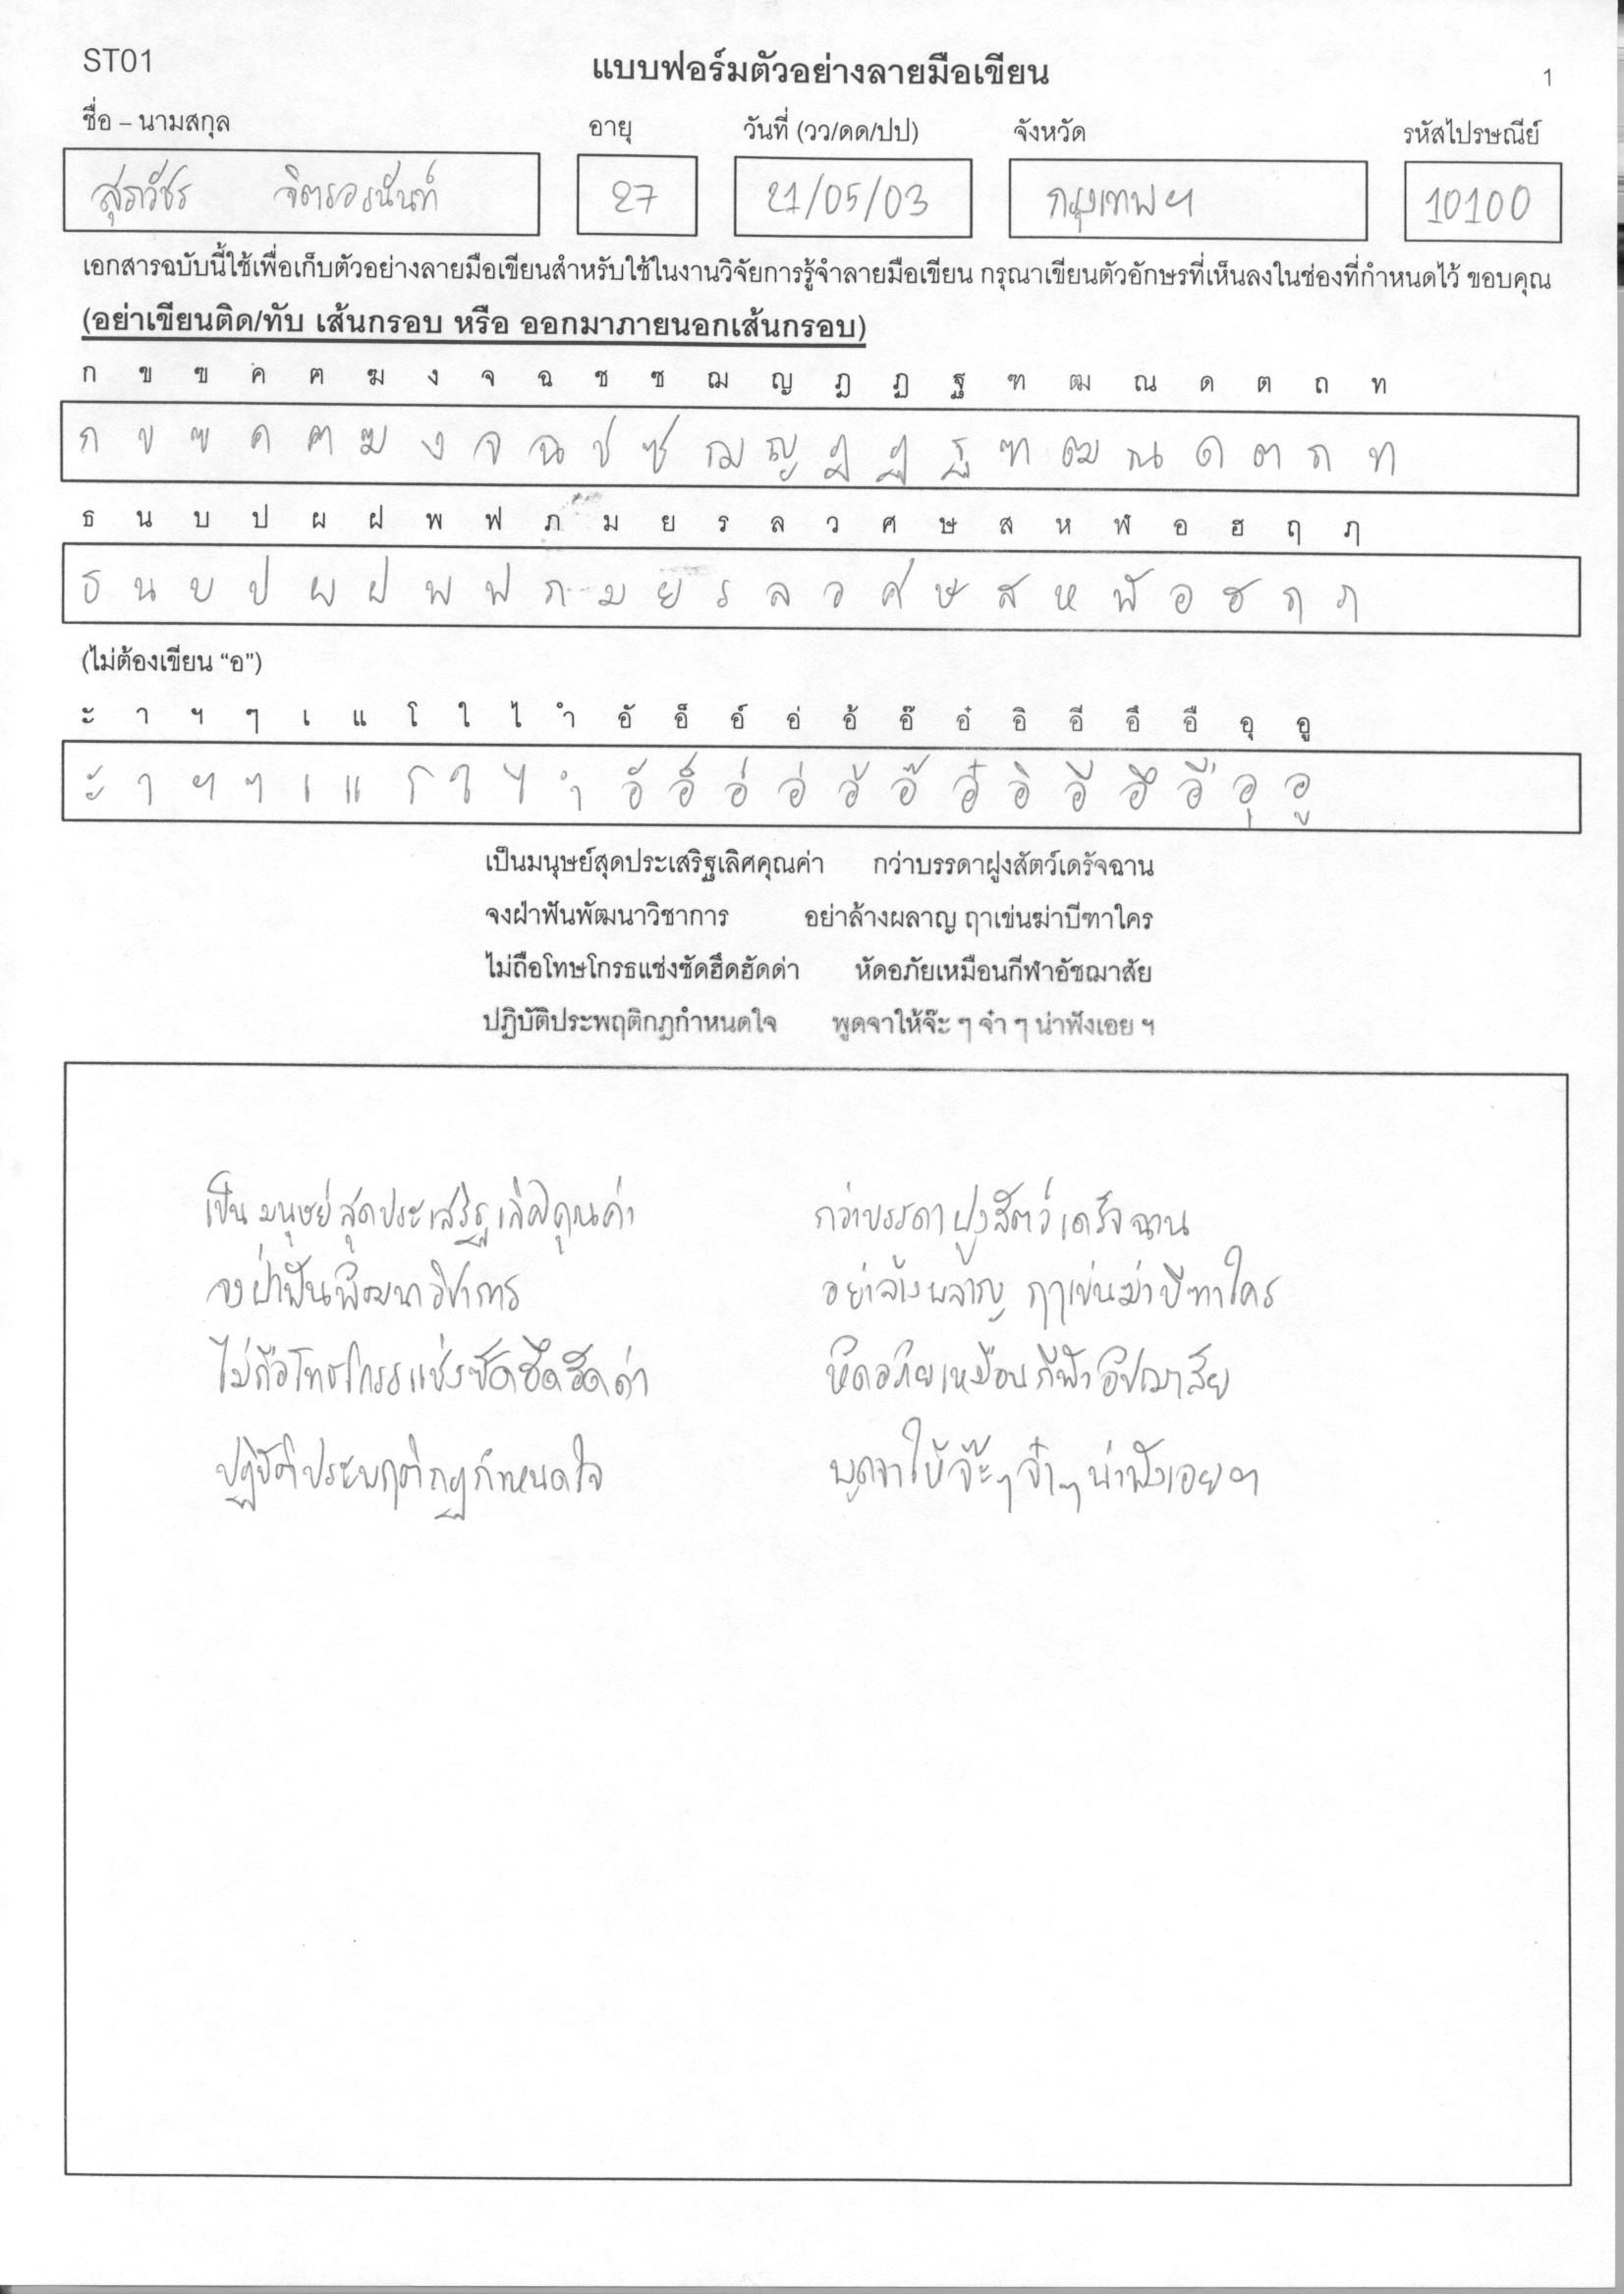 ST01 แบบฟอร์มตัวอย่างลายมือเขียน 1
ชื่อ – นามสกุล อายุ วันที่ (วว/ดด/ปป) จังหวัด รหัสไปรษณีย์
จิตรอรนันท์ 27 21/05/03 กรุงเทพฯ 10100
เอกสารฉบับนี้ใช้เพื่อเก็บตัวอย่างลายมือเขียนสำหรับใช้ในงานวิจัยการรู้จำลายมือเขียน กรุณาเขียนตัวอักษรที่เห็นลงในช่องที่กำหนดไว้ ขอบคุณ
(อย่าเขียนติด/ทับ เส้นกรอบ หรือ ออกมาภายนอกเส้นกรอบ)
ก ข ฃ ค ฅ ฆ ง จ ฉ ช ซ ฌ ญ ฎ ฏ ฐ ฑ ฒ ณ ด ต ถ ท
ก ข ฃ ค ฅ ฆ ง จ ฉ ช ซ ฌ ญ ฎ ฏ ฐ ฑ ฒ ณ ด ต ถ ท
ธ น บ ป ผ ฝ พ ฟ ภ ม ย ร ล ว ศ ษ ส ห ฬ อ ฮ ฤ ภ
ธ น บ ป ผ ฝ พ ฟ ภ ม ย ร ล ว ศ ษ ส ห ฬ อ ฮ ฤ ภ
(ไม่ต้องเขียน “อ”)
ะ า ฯ ๆ เ แ โ ใ ไ ำ อั อ็ อ์ อ่ อ้ อ๊ อ๋ อิ อี อึ อื อุ อู
ะ า ฯ ๆ เ แ โ ใ ไ ำ อั อ็ อ์ อ่ อ้ อ๊ อ๋ อิ อี อึ อื อุ อู
เป็นมนุษย์สุดประเสริฐเลิศคุณค่า กว่าบรรดาฝูงสัตว์เดรัจฉาน
จงฝ่าฟันพัฒนาวิชาการ อย่าล้างผลาญ ฤาเข่นฆ่าบีฑาใคร
ไม่ถือโทษโกรธแช่งซัดฮึดฮัดด่า หัดอภัยเหมือนกีฬาอัชฌาสัย
ปฏิบัติประพฤติกฎกำหนดใจ พูดจาให้จ๊ะ ๆ จ๋า ๆ น่าฟังเอย ฯ
เป็นมนุษย์สุดประเสริฐเลิศคุณค่า กว่าบรรดาฝูงสัตว์เดรัจฉาน
จงฝ่าฟันพัฒนาวิชาการ อย่าล้างผลาญ ฤาเข่นฆ่าบีฑาใคร
ไม่ถือโทษโกรธแช่งซัดฮึดฮัดด่า หัดอภัยเหมือนกีฬาอัชฌาสัย
ปฏิบัติประพฤติกฎกำหนดใจ พูดจาให้จ๊ะๆ จ๋าๆ น่าฟังเอยฯ